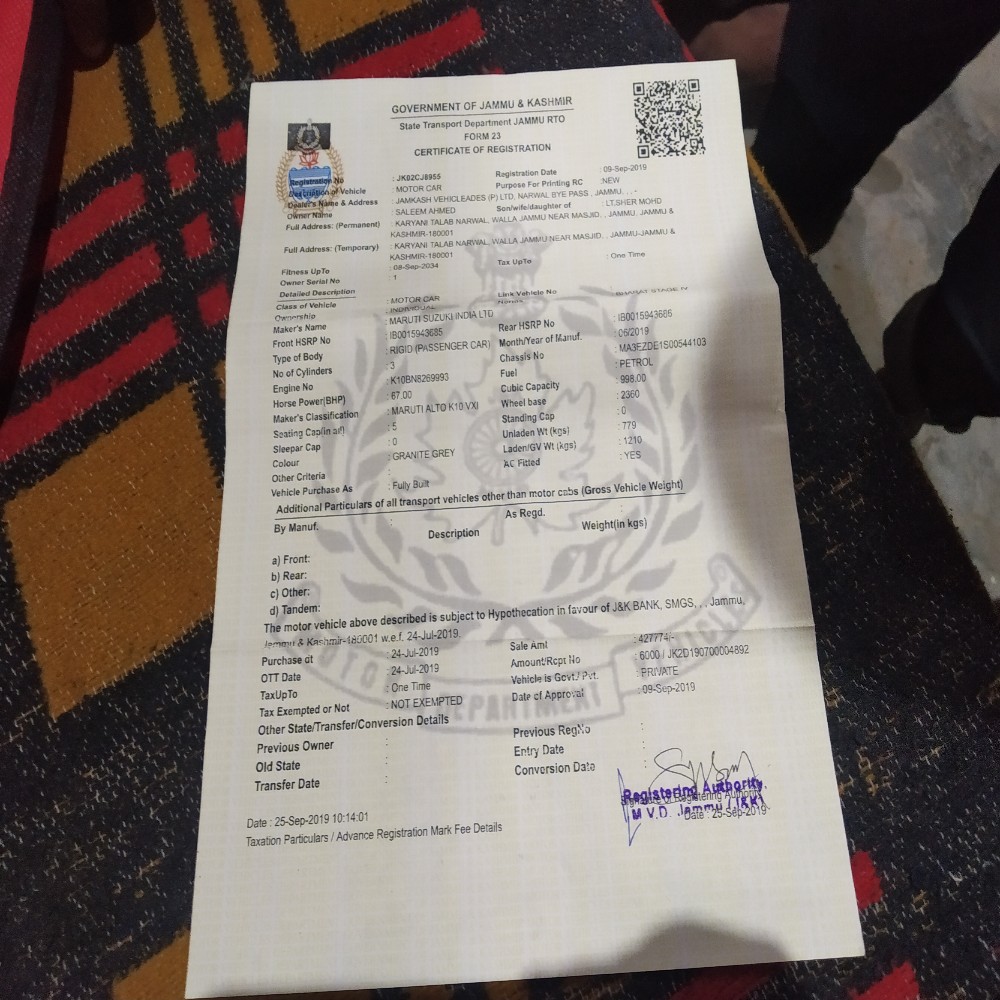 GOVERNMENT OF JAMMU & KASHMIR
State Transport Department JAMMU RTO
FORM 23
CERTIFICATE OF REGISTRATION
Registration No : JK02CJ8955 Registration Date : 09-Sep-2019
Description of Vehicle : MOTOR CAR Purpose For Printing RC : NEW
Dealer's Name & Address : JAMKASH VEHICLEADES (P) LTD, NARWAL BYE PASS , JAMMU, , , -
Owner Name : SALEEM AHMED Son/wife/daughter of : LT.SHER MOHD
Full Address: (Permanent) : KARYANI TALAB NARWAL, WALLA JAMMU NEAR MASJID, , JAMMU, JAMMU &
KASHMIR-180001
Full Address: (Temporary) : KARYANI TALAB NARWAL, WALLA JAMMU NEAR MASJID, , JAMMU-JAMMU &
KASHMIR-180001
Fitness UpTo : 08-Sep-2034 Tax UpTo : One Time
Owner Serial No : 1
Detailed Description
Class of Vehicle : MOTOR CAR Link Vehicle No
Ownership : INDIVIDUAL Norms : BHARAT STAGE IV
Maker's Name : MARUTI SUZUKI INDIA LTD
Front HSRP No : IB0015943685 Rear HSRP No : IB0015943686
Type of Body : RIGID (PASSENGER CAR) Month/Year of Manuf. : 06/2019
No of Cylinders : 3 Chassis No : MA3EZDE1S00544103
Engine No : K10BN8269993 Fuel : PETROL
Horse Power(BHP) : 67.00 Cubic Capacity : 998.00
Maker's Classification : MARUTI ALTO K10 VXI Wheel base : 2360
Seating Cap(in all) : 5 Standing Cap : 0
Sleepar Cap : 0 Unladen Wt (kgs) : 779
Colour : GRANITE GREY Laden/GV Wt (kgs) : 1210
Other Criteria : AC Fitted : YES
Vehicle Purchase As : Fully Built
Additional Particulars of all transport vehicles other than motor cabs (Gross Vehicle Weight)
By Manuf. As Regd.
Description Weight(in kgs)
a) Front:
b) Rear:
c) Other:
d) Tandem:
The motor vehicle above described is subject to Hypothecation in favour of J&K BANK, SMGS, , , Jammu,
Jammu & Kashmir-180001 w.e.f. 24-Jul-2019.
Purchase dt : 24-Jul-2019 Sale Amt : 427774/-
OTT Date : 24-Jul-2019 Amount/Rcpt No : 6000 / JK2D190700004892
TaxUpTo : One Time Vehicle is Govt./ Pvt. : PRIVATE
Tax Exempted or Not : NOT EXEMPTED Date of Approval : 09-Sep-2019
Other State/Transfer/Conversion Details
Previous Owner : Previous RegNo :
Old State : Entry Date :
Transfer Date : Conversion Date :
Registering Authority
Signature of Registering Authority
M.V.D. Jammu (J&K)
Date : 25-Sep-2019
Date : 25-Sep-2019 10:14:01
Taxation Particulars / Advance Registration Mark Fee Details